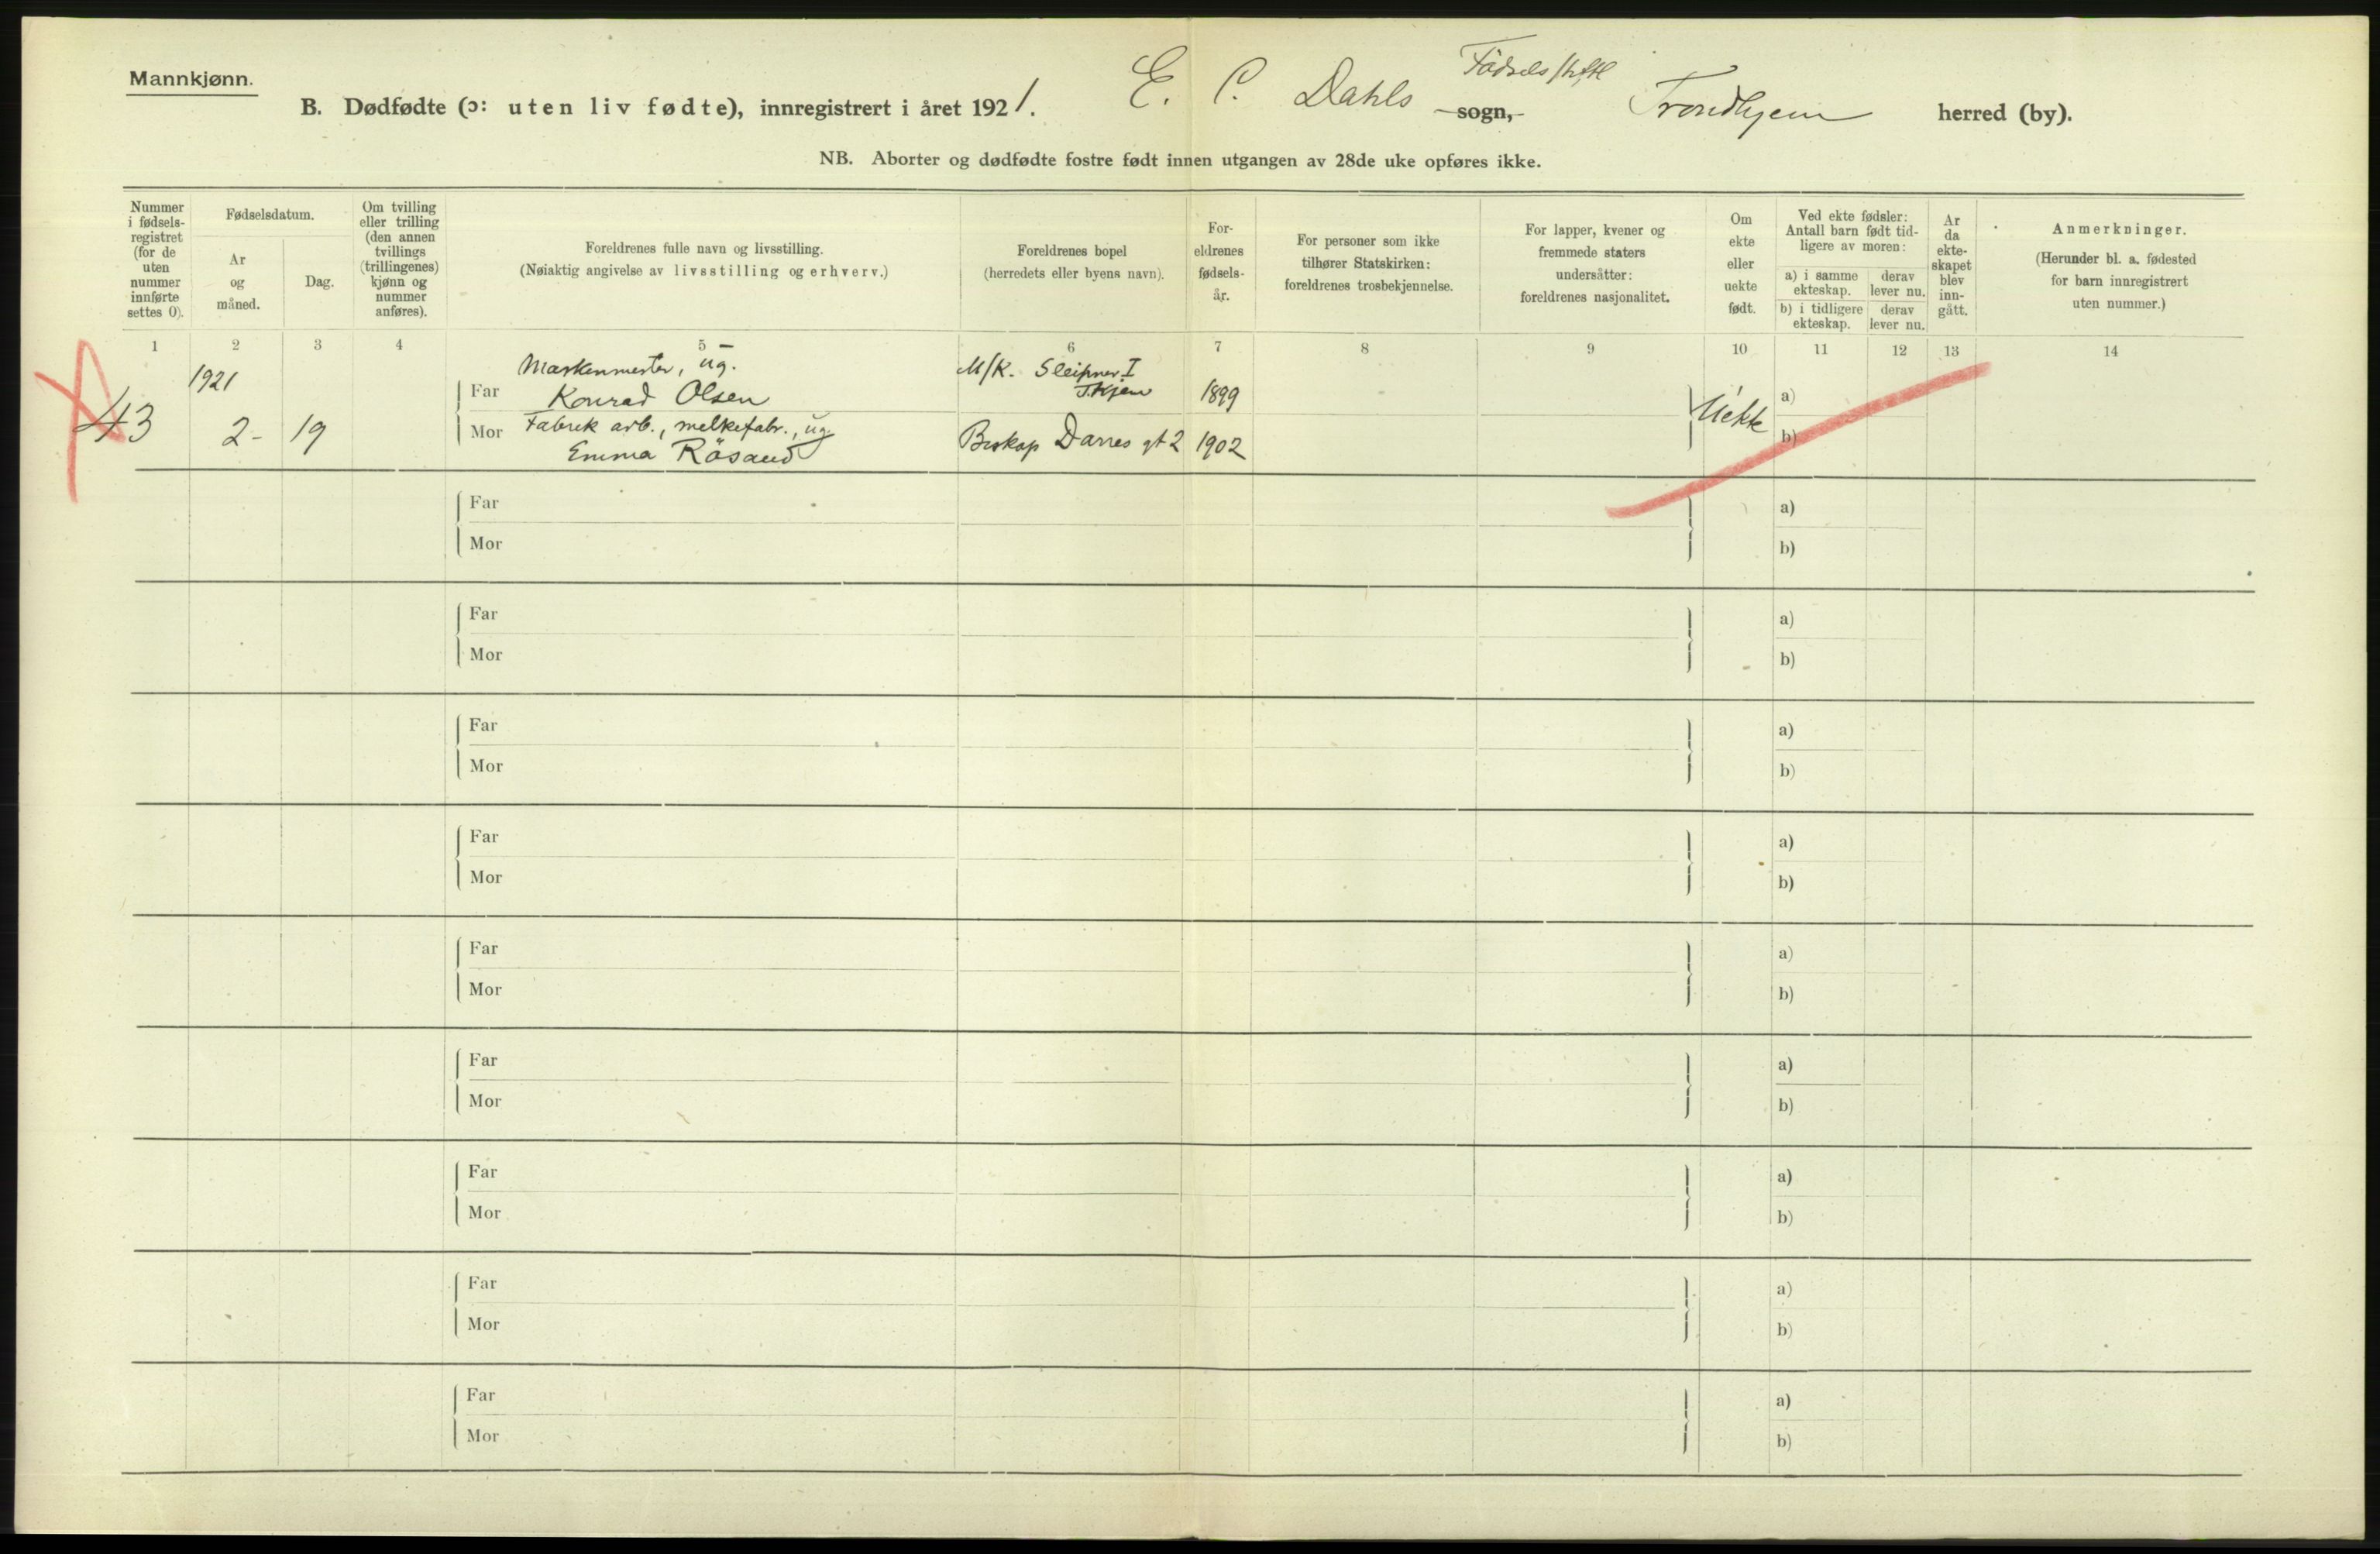 Mannkjønn.
B. Dødfødte (ɔ: uten liv fødte), innregistrert i året 1921. E. C. Dahls Fødselsstift. sogn, Trondhjem herred (by).
NB. Aborter og dødfødte fostre født innen utgangen av 28de uke opføres ikke.
Nummer
i fødsels-
registret
(for de
uten
nummer
innførte
settes 0).
Fødselsdatum.
Ar
og
måned.
Dag.
Om tvilling
eller trilling
(den annen
tvillings
(trillingenes)
kjønn og
nummer
anføres).
Foreldrenes fulle navn og livsstilling.
(Nøiaktig angivelse av livsstilling og erhverv.)
Foreldrenes bopel
(herredets eller byens navn).
For-
eldrenes
fødsels-
år.
For personer som ikke
tilhører Statskirken:
foreldrenes trosbekjennelse.
For lapper, kvener og
fremmede staters
undersåtter:
foreldrenes nasjonalitet.
Om
ekte
eller
uekte
født.
Ved ekte fødsler:
Antall barn født tid-
ligere av moren:
a) i samme
ekteskap.
derav
lever nu.
b) i tidligere
ekteskap.
derav
lever nu.
Ar
da
ekte-
skapet
blev
inn-
gått.
Anmerkninger.
(Herunder bl. a. fødested
for barn innregistrert
uten nummer.)
1 2 3 4 5 6 7 8 9 10 11 12 13 14
1921 Maskenmester, ug. M/K. Sleipner I
Far Konrad Olsen T.hjem 1899 a)
43 2- 19 Mor Fabrik arb., melkefabr., ug. Uekte b)
Emma Røsand Biskop Darres gt 2 1902
Far a)
Mor b)
Far a)
Mor b)
Far a)
Mor b)
Far a)
Mor b)
Far a)
Mor b)
Far a)
Mor b)
Far a)
Mor b)
Far a)
Mor b)
Far a)
Mor b)